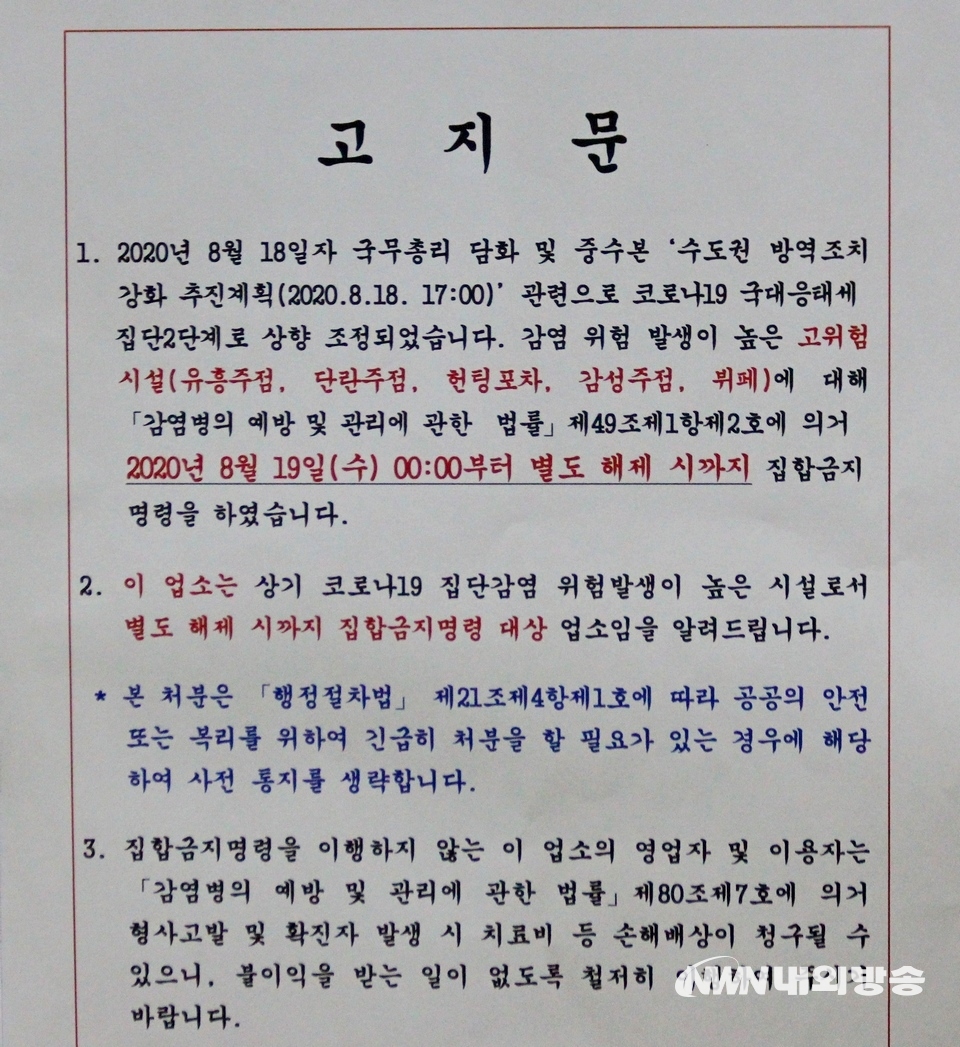 고 지 문
1. 2020년 8월 18일자 국무총리 담화 및 중수본 '수도권 방역조치
강화 추진계획(2020.8.18. 17:00)' 관련으로 코로나19 국대응태세
집단2단계로 상향 조정되었습니다. 감염 위험 발생이 높은 고위험
시설(유흥주점, 단란주점, 헌팅포차, 감성주점, 뷔페)에 대해
「감염병의 예방 및 관리에 관한 법률」제49조제1항제2호에 의거
2020년 8월 19일(수) 00:00부터 별도 해제 시까지 집합금지
명령을 하였습니다.
2. 이 업소는 상기 코로나19 집단감염 위험발생이 높은 시설로서
별도 해제 시까지 집합금지명령 대상 업소임을 알려드립니다.
* 본 처분은 「행정절차법」 제21조제4항제1호에 따라 공공의 안전
또는 복리를 위하여 긴급히 처분을 할 필요가 있는 경우에 해당
하여 사전 통지를 생략합니다.
3. 집합금지명령을 이행하지 않는 이 업소의 영업자 및 이용자는
「감염병의 예방 및 관리에 관한 법률」제80조제7호에 의거
형사고발 및 확진자 발생 시 치료비 등 손해배상이 청구될 수
있으니, 불이익을 받는 일이 없도록 철저히
바랍니다.
NWN내외방송